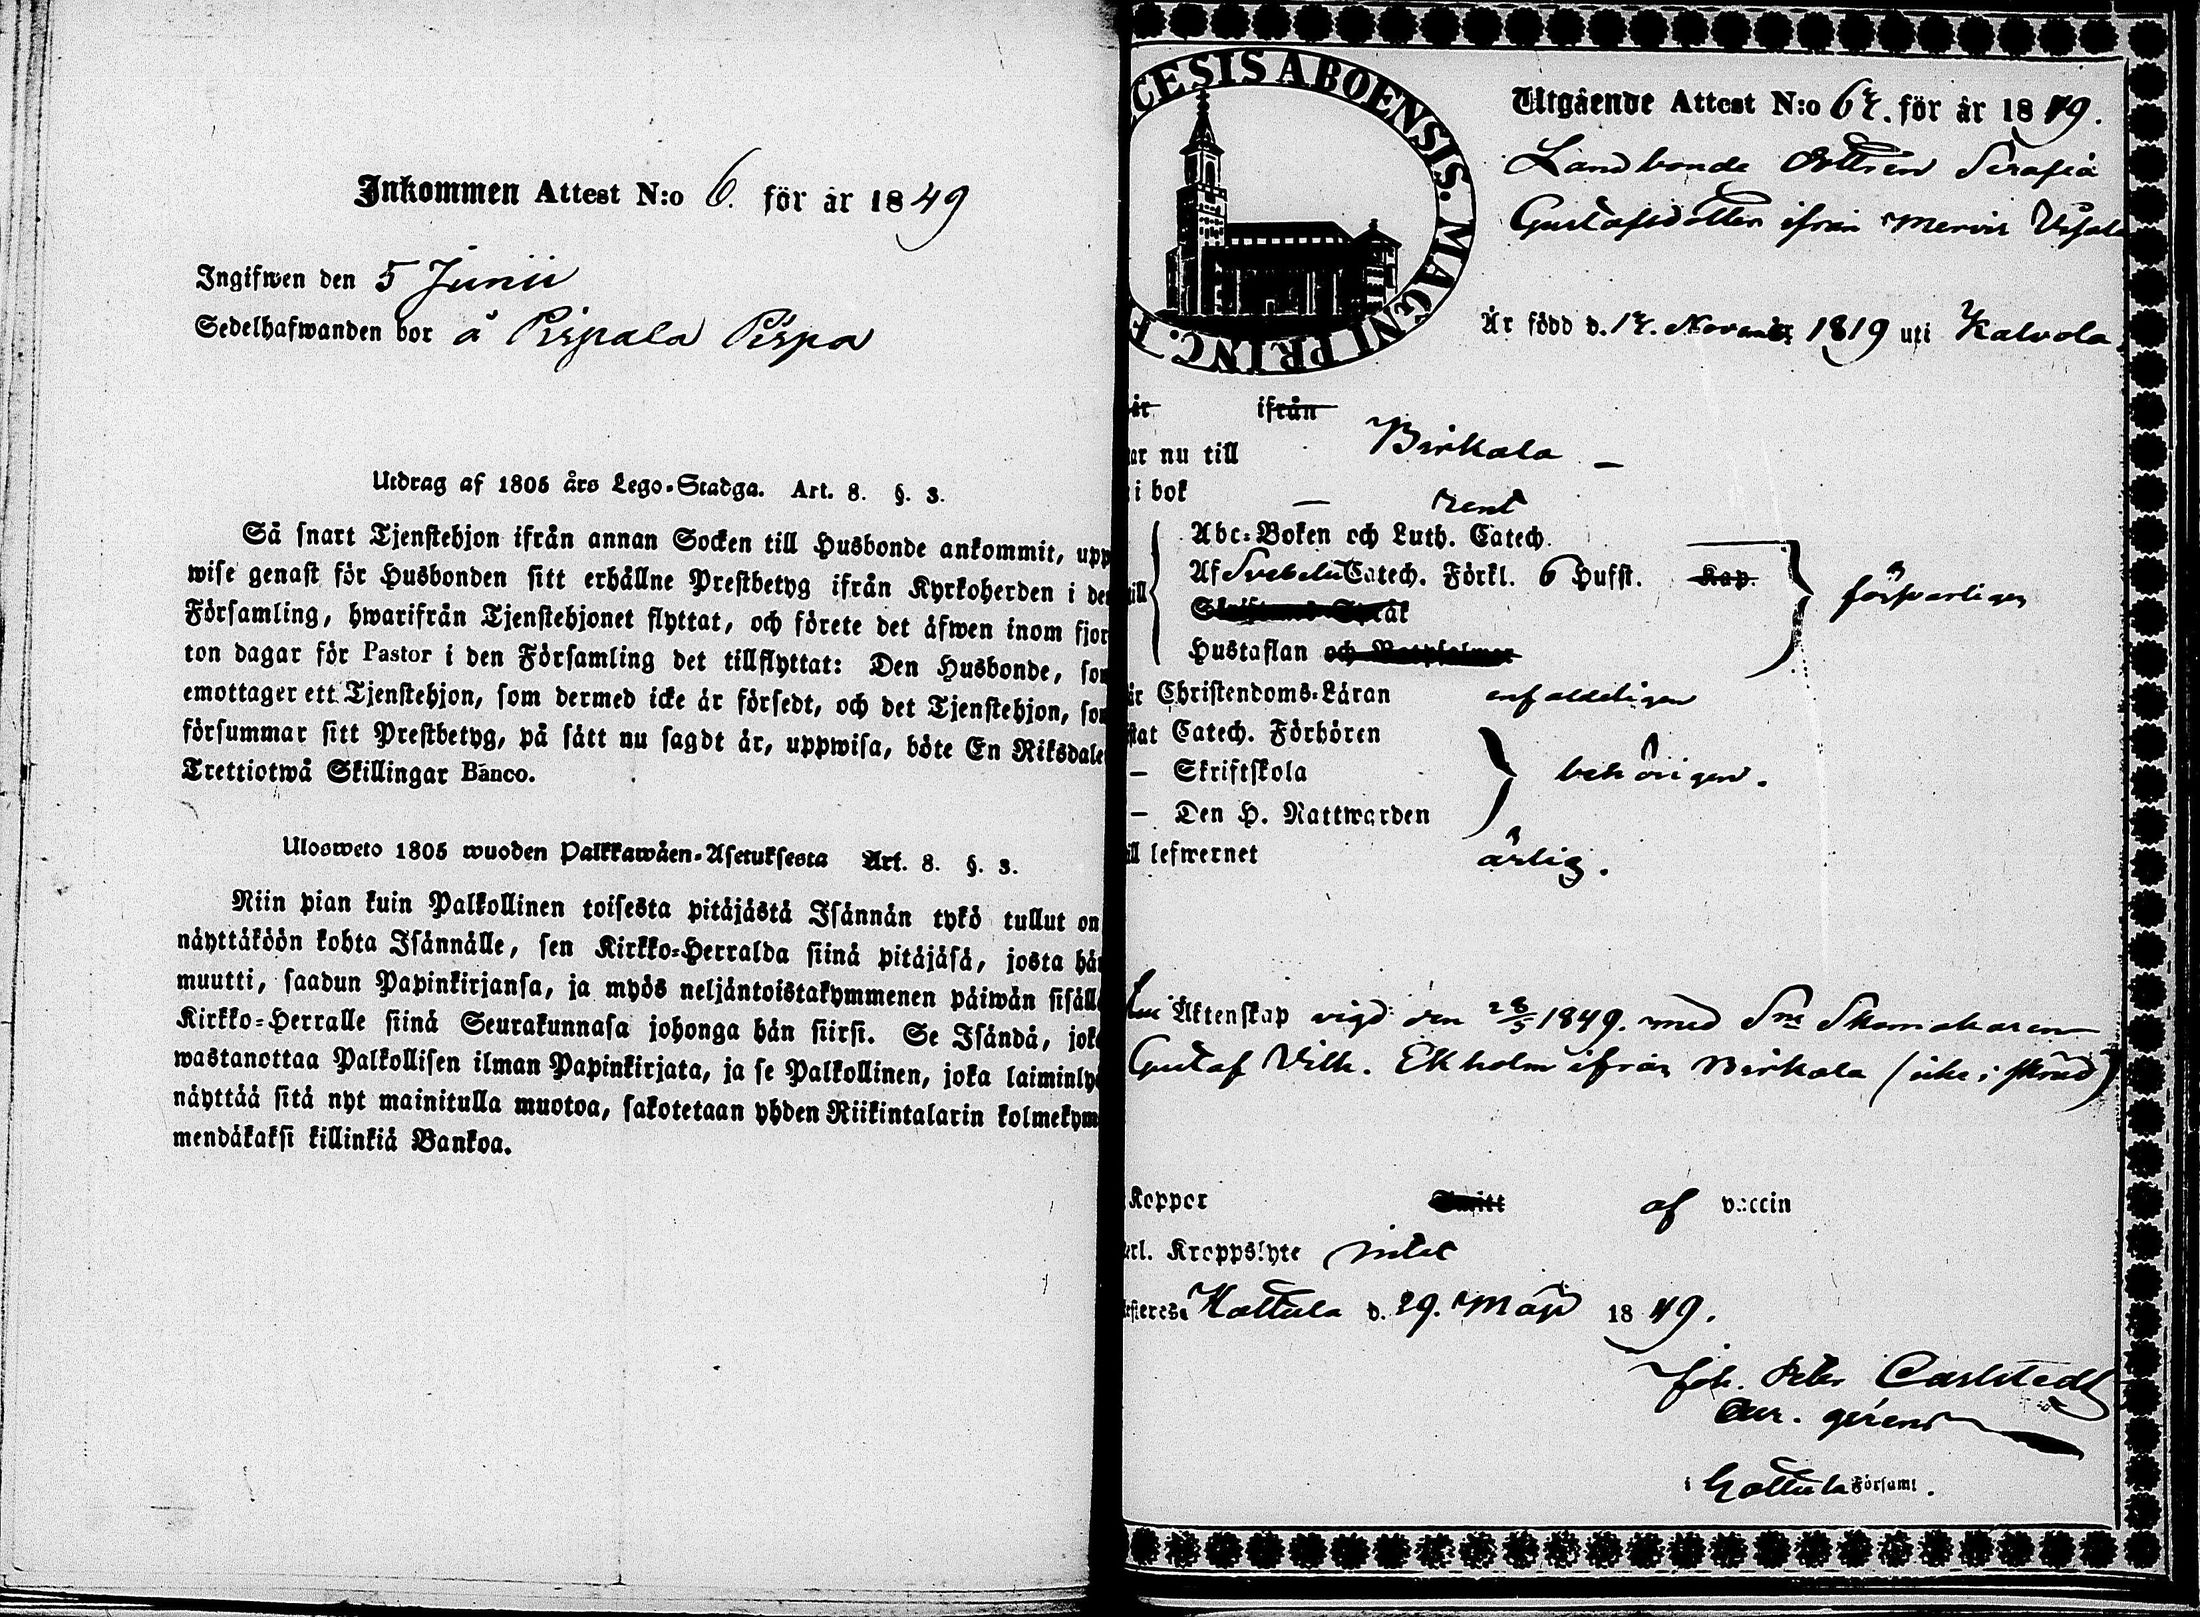 Inkommen Attest N:o 6. för år 1849
Ingifwen den 5 Junii
Sedelhafwanden bor å Pispala Pispa
Utdrag af 1805 års Lego-Stadga. Art. 8. §. 3.
Så snart Tjenstehjon ifrån annan Socken till Husbonde ankommit, upp
wise genast för Husbonden sitt erhållne Prestbetyg ifrån Kyrkoherden i de
Församling, hwarifrån Tjenstehjonet flyttat, och förete det äfwen inom fjor
ton dagar för Pastor i den Församling det tillflyttat: Den Husbonde, so
emottager ett Tjenstehjon, som dermed icke är försedt, och det Tjenstehjon, so
försummar sitt Prestbetyg, på sätt nu sagdt är, uppwisa, böte En Riksdale
Trettiotwå Skillingar Banco.
Ulosweto 1805 wuoden Palkkawäen-Asetuksesta Art. 8. §. 3.
Niin pian kuin Palkollinen toisesta pitäjästä Isännän tykö tullut on
näyttäköön kohta Isännälle, sen Kirkko-Herralda siinä pitäjäsä, josta hän
muutti, saadun Papinkirjansa, ja myös neljäntoistakymmenen päiwän sisäll
Kirkko-Herralle siinä Seurakunnasa johonga hän siirsi. Se Isändä, jok
wastanottaa Palkollisen ilman Papinkirjata, ja se Palkollinen, joka laiminly
näyttää sitä nyt mainitulla muotoa, sakotetaan yhden Riikintalarin kolmekym
mendäkaksi killinkiä Bankoa.
CESIS ABOENSIS. MAGNI PRINC. F
Utgående Attest N:o för år 1849.
Landbonde Dottren Serafia
Gustafsdotter ifrån Mervis
Är född d. Novemb. 1819 uti Kalvola
är ifrån
ar nu till Birkala –
i bok – rent
Abc-Boken och Luth. Catech.
till Af Svebelii Catech. Förkl. 6 Hufst. Kap. försvarligen
Språk
Hustaflan och
är Christendoms-Läran enfaldeligen
stat Catech. Förhören
– Skriftskola behörigen.
– Den H. Nattwarden
ill lefwernet ärlig.
Äktenskap vigd den 28/5 1849. med Sne Skomakaren
Gustaf Vilh. Ekholm ifrån Birkala (icke i skrud)
Koppor af vaccin
erl. Kroppslyte intet
esteras. Hattula d. 29. Maji 1849.
Joh. Petr Carlstedt
Cur. gerens
i Hattula Församl.